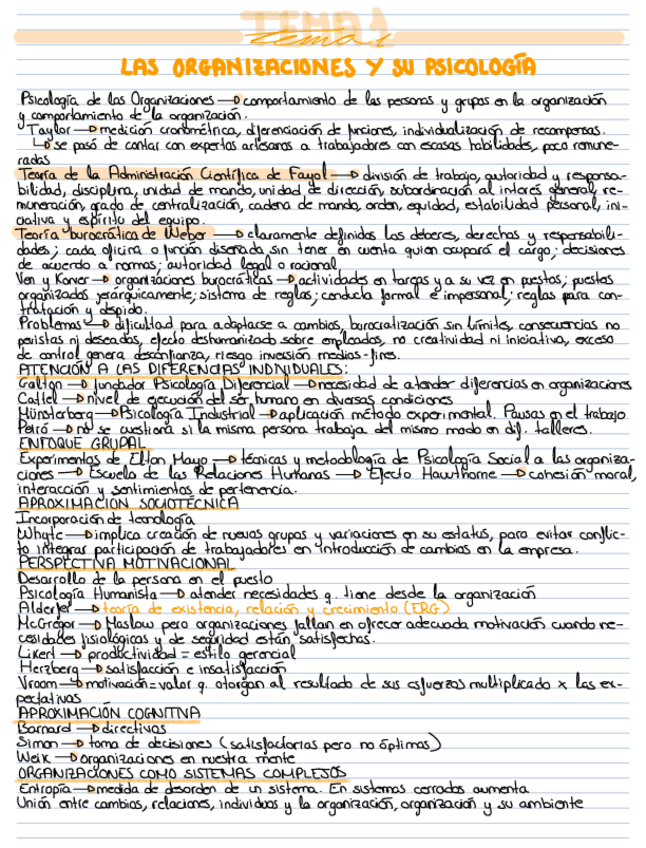 TEMA 1
tema 1
LAS ORGANIZACIONES Y SU PSICOLOGÍA
Psicología de las Organizaciones → comportamiento de las personas y grupos en la organización
y comportamiento de la organización.
Taylor → medición cronométrica, diferenciación de funciones, individualización de recompensas.
↳ se pasó de contar con expertos artesanos a trabajadores con escasas habilidades, poco remune-
radas
Teoría de la Administración Científica de Fayol → división de trabajo, autoridad y responsa-
bilidad, disciplina, unidad de mando, unidad de dirección, subordinación al interés general, re-
muneración, grado de centralización, cadena de mando, orden, equidad, estabilidad personal, ini-
ciativa y espíritu del equipo.
Teoría burocrática de Weber → claramente definidos los deberes, derechos y responsabili-
dades; cada oficina o función diseñada sin tener en cuenta quien ocupará el cargo; decisiones
de acuerdo a normas; autoridad legal o racional
Ven y Koner → organizaciones burocráticas → actividades en tareas y a su vez en puestos; puestos
organizados jerárquicamente; sistema de reglas; conducta formal e impersonal; reglas para con-
tratación y despido.
Problemas → dificultad para adaptarse a cambios, burocratización sin límites, consecuencias no
previstas ni deseadas, efecto deshumanizado sobre empleados, no creatividad ni iniciativa, exceso
de control genera desconfianza, riesgo inversión medios-fines.
ATENCIÓN A LAS DIFERENCIAS INDIVIDUALES:
Galton → fundador Psicología Diferencial → necesidad de atender diferencias en organizaciones
Cattel → nivel de ejecución del ser humano en diversas condiciones
Münsterberg → Psicología Industrial → aplicación método experimental. Pausas en el trabajo
Peiró → no se cuestiona si la misma persona trabaja del mismo modo en dif. talleres.
ENFOQUE GRUPAL
Experimentos de Elton Mayo → técnicas y metodología de Psicología Social a las organiza-
ciones → Escuela de las Relaciones Humanas → Efecto Hawthorne → cohesión moral,
interacción y sentimientos de pertenencia.
APROXIMACIÓN SOCIOTÉCNICA
Incorporación de tecnología
Whyte → implica creación de nuevos grupos y variaciones en su estatus, para evitar conflic-
to integrar participación de trabajadores en introducción de cambios en la empresa.
PERSPECTIVA MOTIVACIONAL
Desarrollo de la persona en el puesto
Psicología Humanista → atender necesidades q. tiene desde la organización
Alderfer → teoría de existencia, relación y crecimiento (ERG)
McGregor → Maslow pero organizaciones fallan en ofrecer adecuada motivación cuando ne-
cesidades fisiológicas y de seguridad están satisfechas.
Likert → productividad = estilo gerencial
Herzberg → satisfacción e insatisfacción
Vroom → motivación = valor q. otorgan al resultado de sus esfuerzos multiplicado x las ex-
pectativas
APROXIMACIÓN COGNITIVA
Barnard → directivos
Simon → toma de decisiones (satisfactorias pero no óptimas)
Weik → organizaciones en nuestra mente
ORGANIZACIONES COMO SISTEMAS COMPLEJOS
Entropía → medida de desorden de un sistema. En sistemas cerrados aumenta
Unión entre cambios, relaciones, individuos y la organización, organización y su ambiente